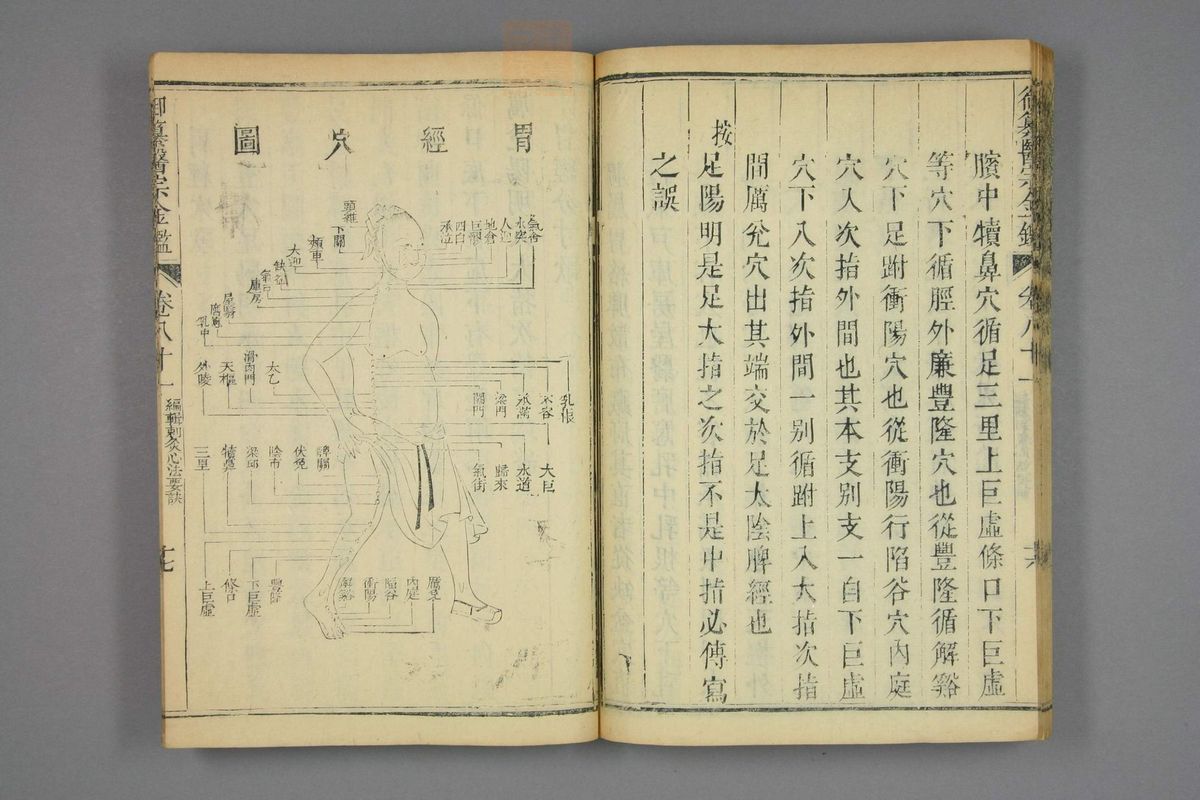 臏中犢鼻穴循足三里上巨虛條口下巨虛
等穴下循脛外廉豐隆穴也從豐隆循解谿
穴下足跗衝陽穴也從衝陽行陷谷穴內庭
穴入次指外間也其本支別支一自下巨虛
穴下入次指外間一別循跗上入大指次指
間厲兊穴出其端交於足太陰脾經也
按足陽明是足大指之次指不是中指必傳寫
之誤
御纂醫宗金鑑
卷八十一
編輯刺灸心法要訣
胃經穴圖
氣舍
水突
人迎
地倉
巨髎
四白
承泣
頭維
下關
頰車
大迎
缺盆
氣戶
庫房
屋翳
膺窻
乳中
乳根
不容
承滿
梁門
關門
太乙
滑肉門
天樞
外陵
大巨
水道
歸來
氣街
髀關
伏兔
陰市
梁邱
犢鼻
三里
厲兊
內庭
陷谷
衝陽
解谿
豐隆
下巨虛
條口
上巨虛